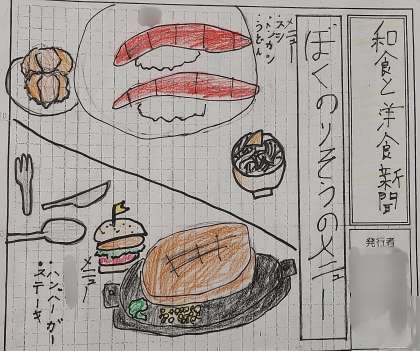 和食と洋食新聞
発行者
ぼくのりそうのメニュー
メニュー
・スシ
・トンカツ
・うどん
メニュー
・ハンバーガー
・ステーキ